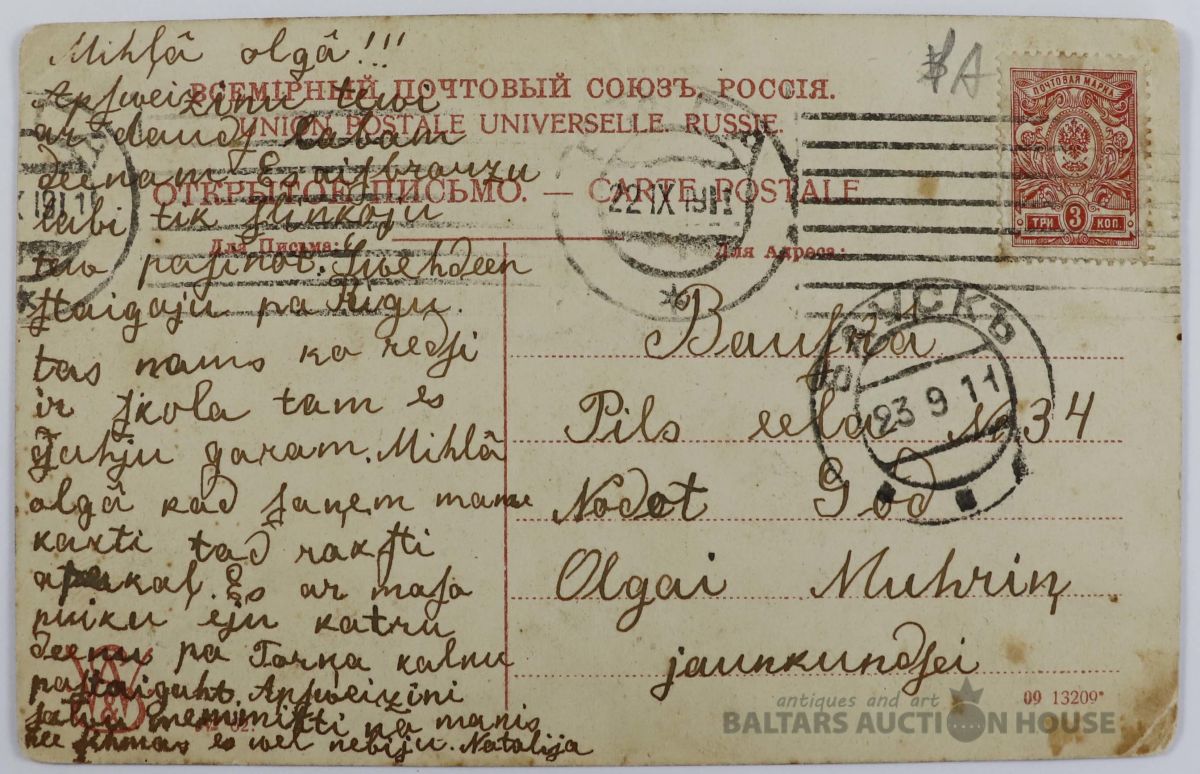 Mihļâ olgâ!!!
Apsweizinu tewi
ar daudz labam
deenam
lubi tik
tuw pasinot. Swehdeen
staigaju pa Rigu.
tas nams ko redsi
ir skola tam es
gahju garam. Mihļâ
olgâ kad saņem manu
karti tad raksti
atpakaļ. Es ar masa
puiku eju katru
deenu pa Torņa kalnu
pastaigaht. Apsweizini
manis
es wel nebiju. Natalija
ВСЕМІРНЫЙ ПОЧТОВЫЙ СОЮЗЪ. РОССІЯ.
UNION POSTALE UNIVERSELLE RUSSIE.
ОТКРЫТОЕ ПИСЬМО. — CARTE POSTALE
Для Письма:
Для Адреса:
ПОЧТОВАЯ МАРКА
ТРИ 3 КОП.
22 IX 1911
X 1911
БАУСКЪ
23 9 11
Bauska
Pils eela № 34
Nodot God
Olgai Muhriņ
jaunkundsei
09 13209*
antiques and art
BALTARS AUCTION HOUSE